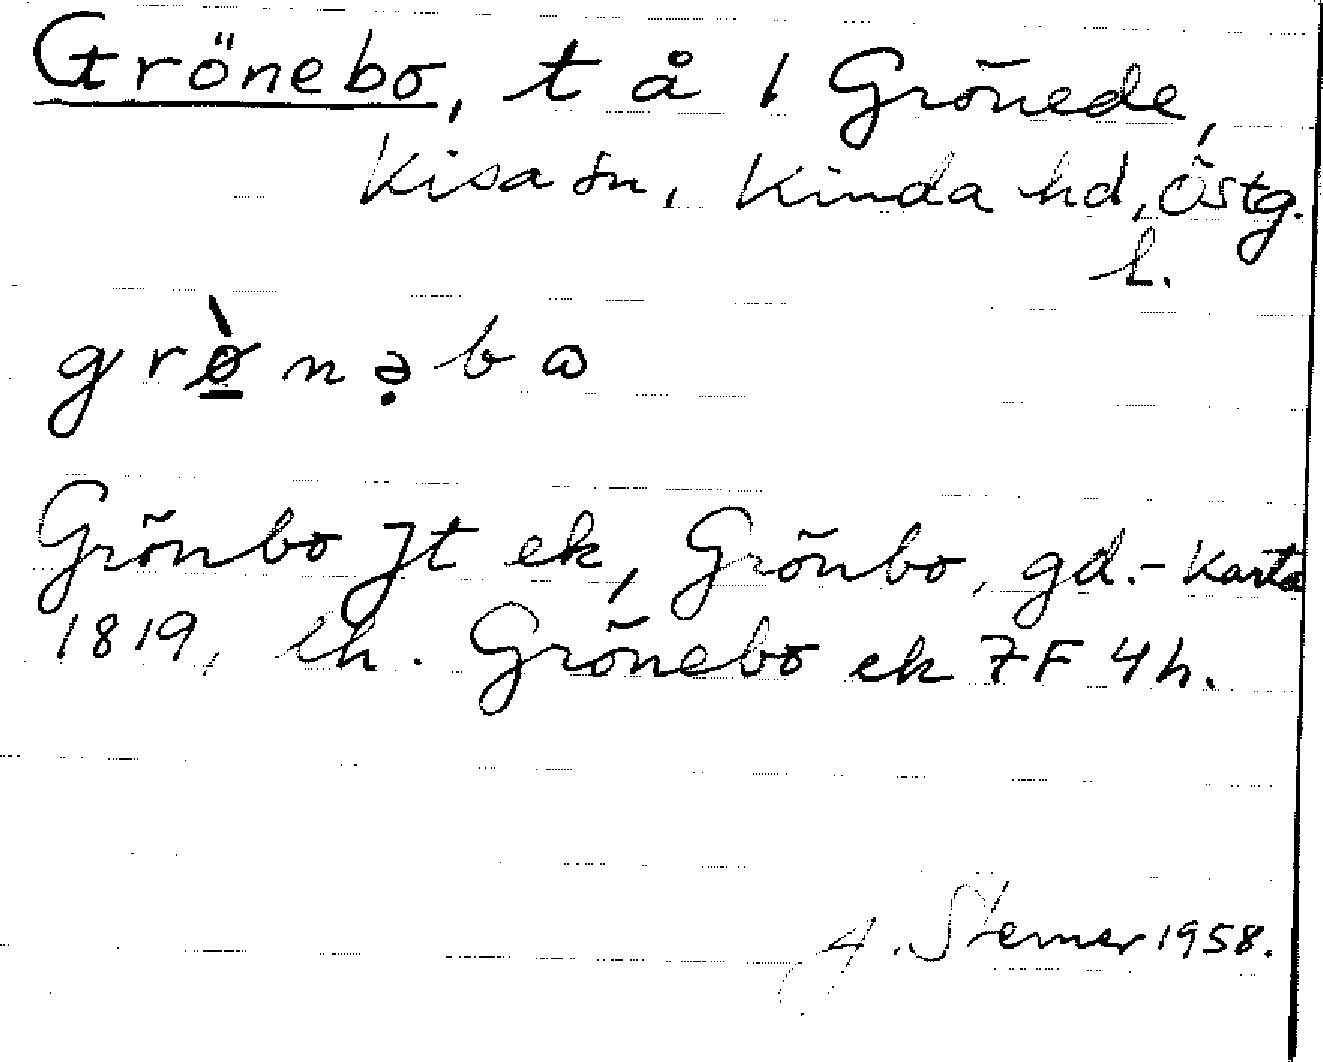 Grönebo, t å 1 Grönede,
Kisa sn, Kinda hd, Östg.
l.
grø̀nəbo
Grönbo Jt ek, Grönbo, gd.- Karta
1819, lh. Grönebo ek 7F 4h.
J. Sterner 1958.